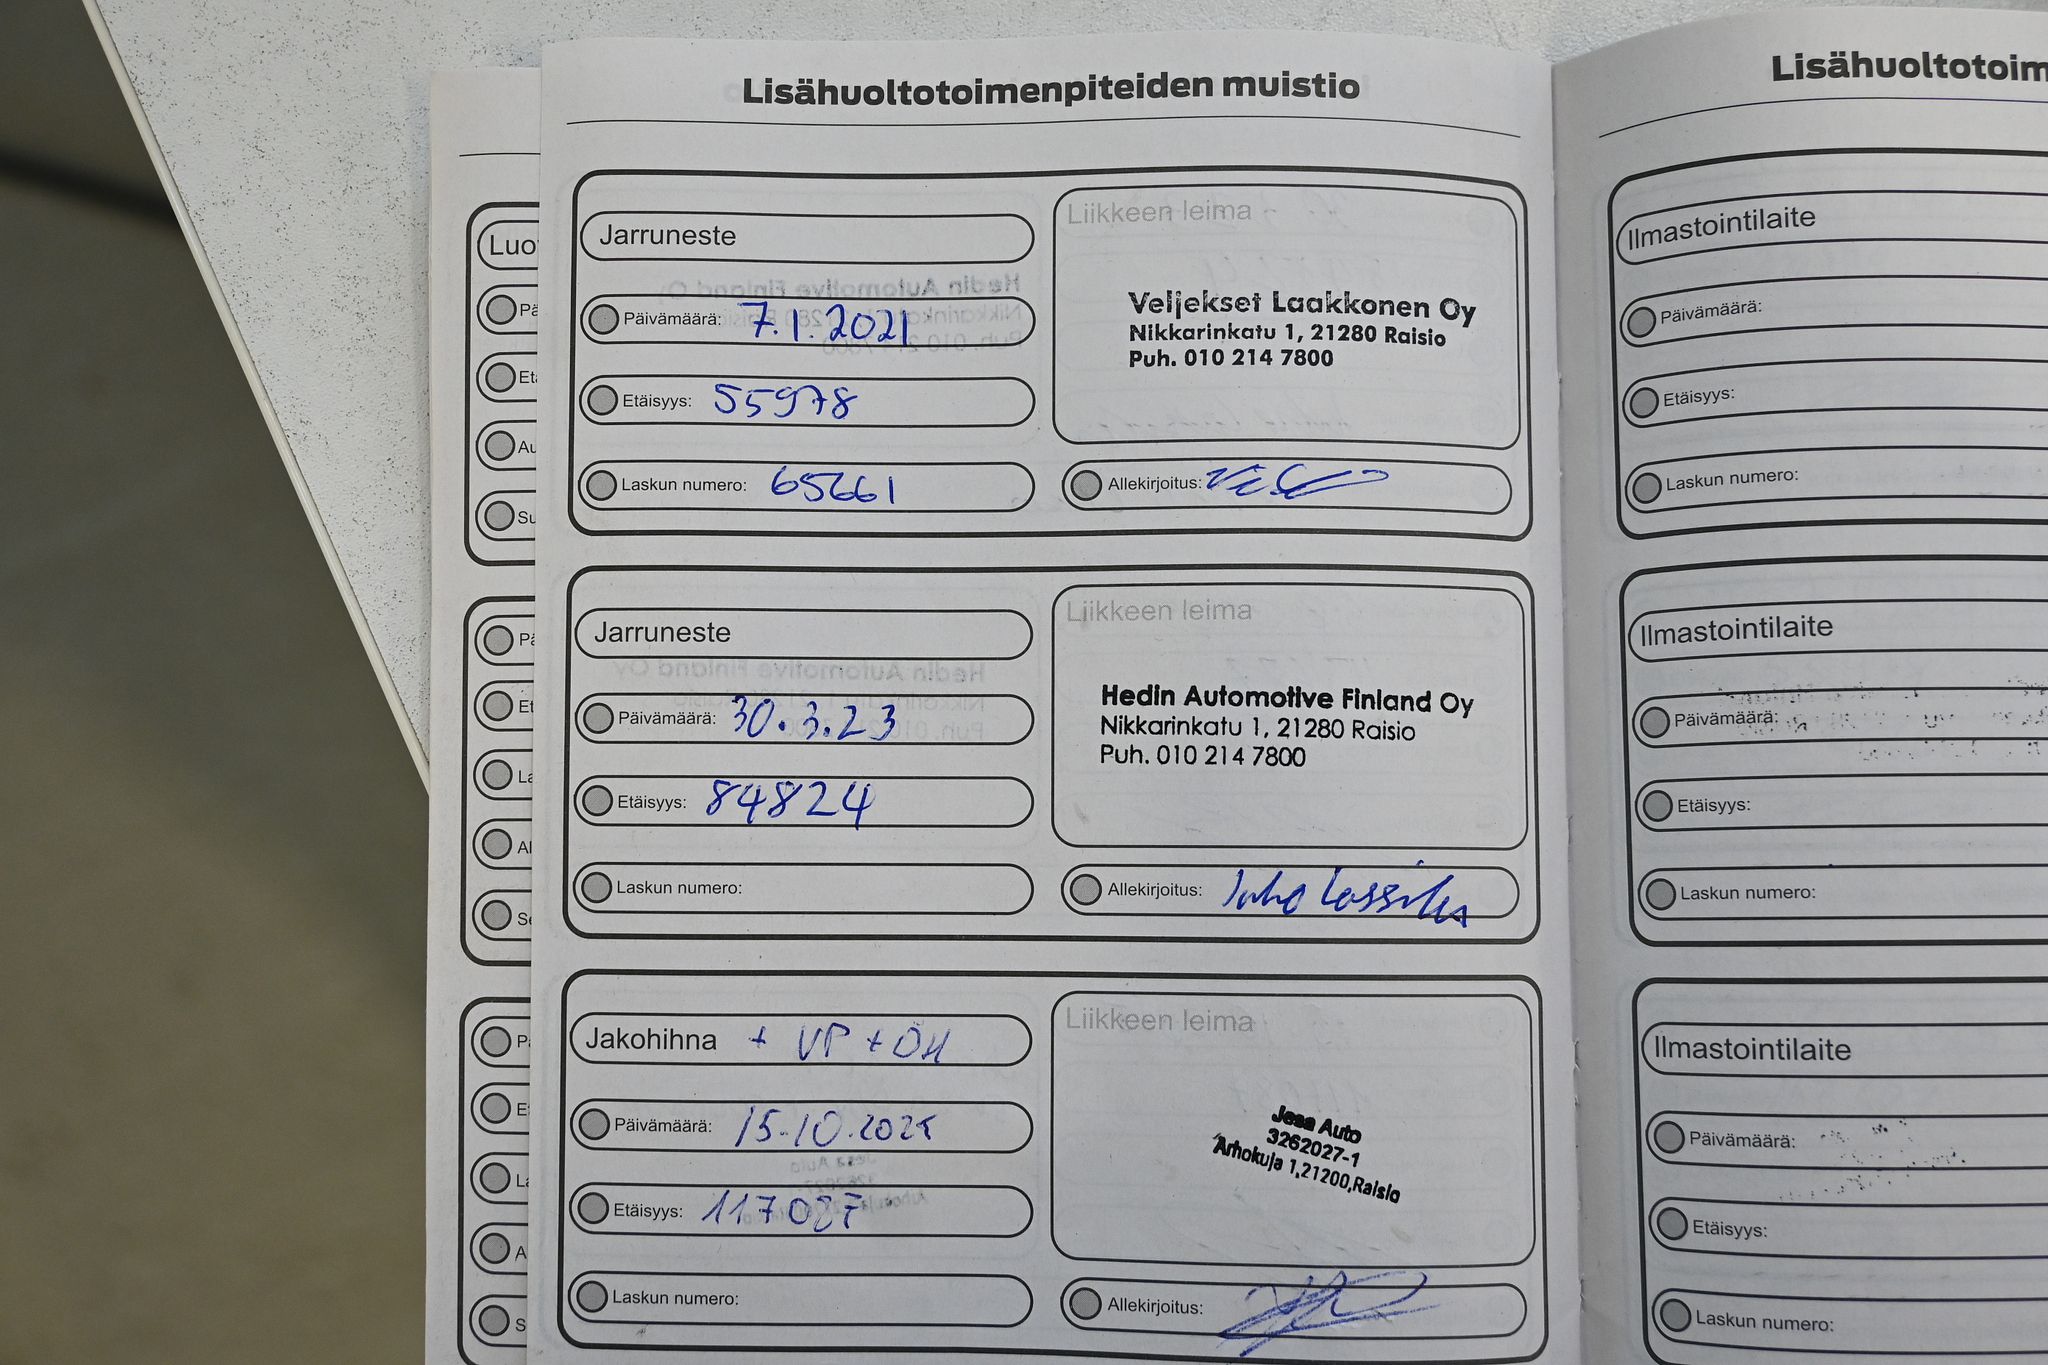 Lisähuoltotoimenpiteiden muistio
Jarruneste
Päivämäärä: 7.1.2021
Etäisyys: 55978
Laskun numero: 65661
Liikkeen leima
Veljekset Laakkonen Oy
Nikkarinkatu 1, 21280 Raisio
Puh. 010 214 7800
Allekirjoitus:
Jarruneste
Päivämäärä: 30.3.23
Etäisyys: 84824
Laskun numero:
Liikkeen leima
Hedin Automotive Finland Oy
Nikkarinkatu 1, 21280 Raisio
Puh. 010 214 7800
Allekirjoitus:
Jakohihna + VP + ÖH
Päivämäärä: 15.10.2025
Etäisyys: 117087
Laskun numero:
Liikkeen leima
Jesa Auto
3262027-1
Arhokuja 1,21200,Raisio
Allekirjoitus:
Lisähuoltotoim
Ilmastointilaite
Päivämäärä:
Etäisyys:
Laskun numero:
Ilmastointilaite
Päivämäärä:
Etäisyys:
Laskun numero:
Ilmastointilaite
Päivämäärä:
Etäisyys:
Laskun numero: